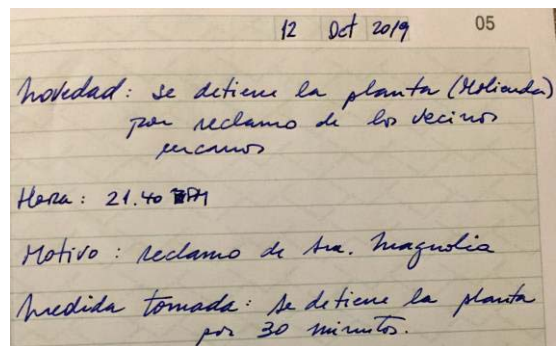 12 Oct 2019 05
Novedad: se detiene la planta (Molienda)
por reclamo de los vecinos
cercanos
Hora: 21.40 PM
Motivo: reclamo de Sra. Magnolia
Medida tomada: se detiene la planta
por 30 minutos.